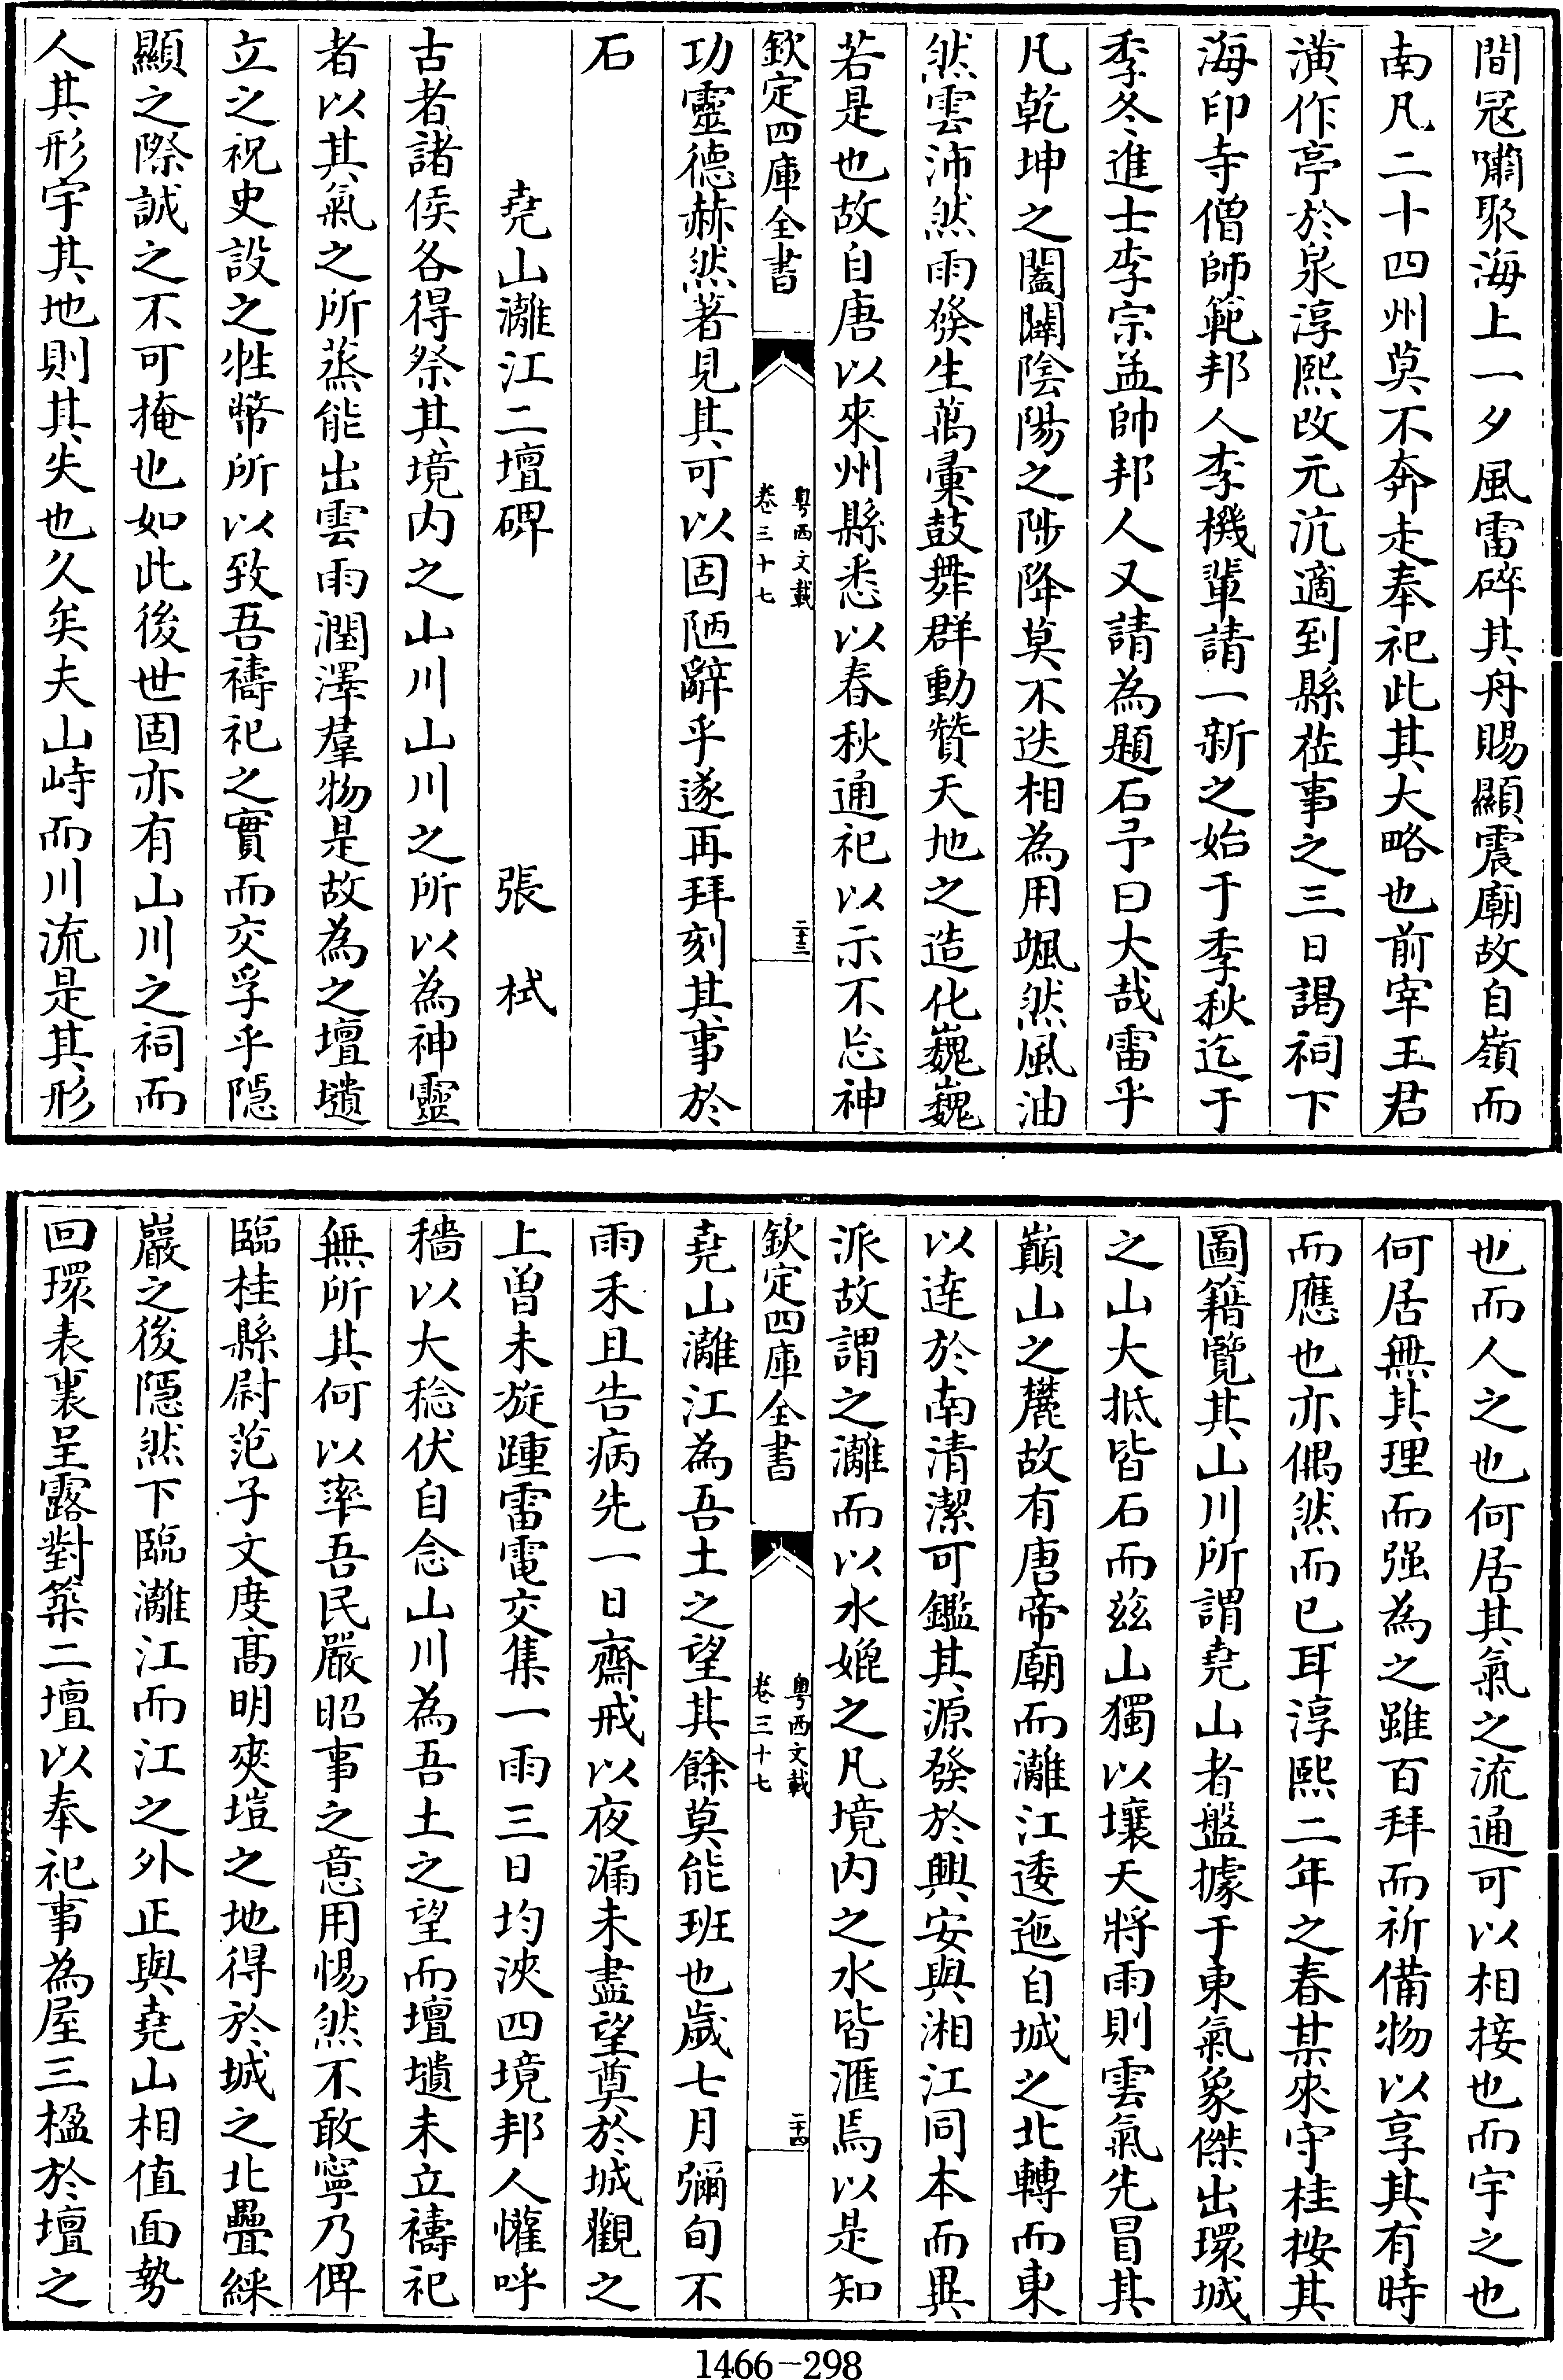 間冦嘯聚海上一夕風雷碎其舟賜顯震廟故自嶺而
南凡二十四州莫不奔走奉祀此其大略也前宰王君
潢作亭於泉淳熙改元沆適到縣莅事之三日謁祠下
海印寺僧師範邦人李機輩請一新之始于季秋迄于
季冬進士李宗孟帥邦人又請為題石予曰大哉雷乎
凡乾坤之闔闢陰陽之陟降莫不迭相為用颯然風油
然雲沛然雨發生萬彚鼓舞群動贊天地之造化巍巍
若是也故自唐以來州縣悉以春秋通祀以示不忘神
欽定四庫全書
粵西文載
卷三十七
二十三
功靈德赫然著見其可以固陋辭乎遂再拜刻其事於
石
堯山灕江二壇碑 張栻
古者諸侯各得祭其境内之山川山川之所以為神靈
者以其氣之所蒸能出雲雨潤澤羣物是故為之壇壝
立之祝史設之牲幣所以致吾禱祀之實而交孚乎隠
顯之際誠之不可掩也如此後世固亦有山川之祠而
人其形宇其地則其失也久矣夫山峙而川流是其形
也而人之也何居其氣之流通可以相接也而宇之也
何居無其理而强為之雖百拜而祈備物以享其有時
而應也亦偶然而已耳淳熙二年之春某來守桂按其
圖籍覽其山川所謂堯山者盤據于東氣象傑出環城
之山大抵皆石而兹山獨以壤天將雨則雲氣先冒其
巔山之麓故有唐帝廟而灕江逶迤自城之北轉而東
以達於南清潔可鑑其源發於興安與湘江同本而異
派故謂之灕而以水媲之凡境内之水皆滙焉以是知
欽定四庫全書
粵西文載
卷三十七
二十四
堯山灕江為吾土之望其餘莫能班也歲七月彌旬不
雨禾且告病先一日齋戒以夜漏未盡望奠於城觀之
上曽未旋踵雷電交集一雨三日均浹四境邦人懽呼
穡以大稔伏自念山川為吾土之望而壇壝未立禱祀
無所其何以率吾民嚴昭事之意用惕然不敢寧乃俾
臨桂縣尉范子文度髙明爽塏之地得於城之北疊綵
巖之後隠然下臨灕江而江之外正與堯山相值面勢
回環表裏呈露對築二壇以奉祀事為屋三楹於壇之
1466-298